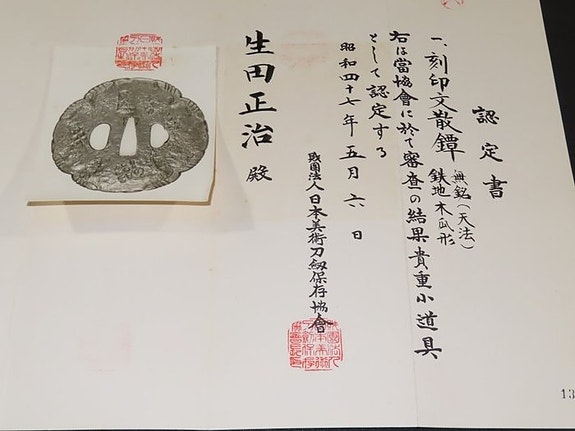 認定書
一、刻印文散鐔 無銘(天法)
鉄地木瓜形
右は當協會に於て審査の結果貴重小道具
として認定する
昭和四十七年五月六日
財團法人日本美術刀剣保存協會
生田正治殿
13